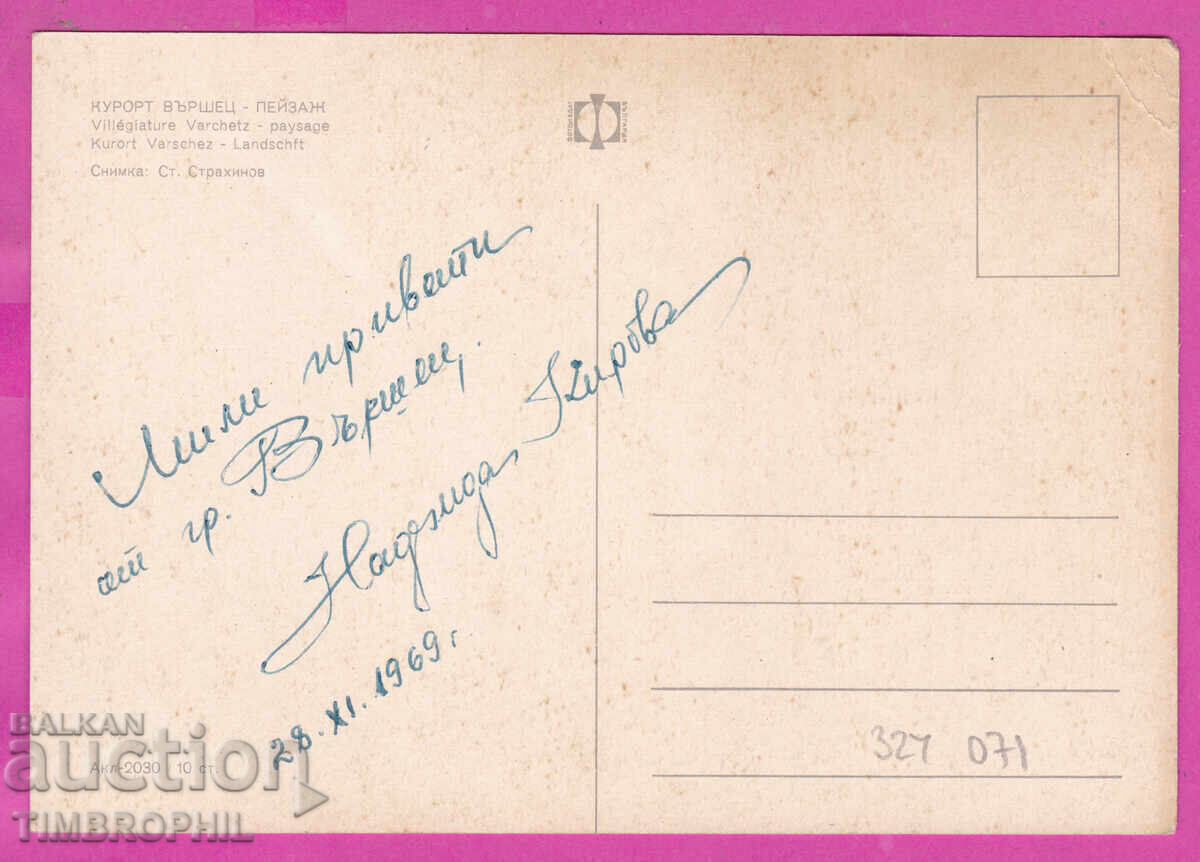 КУРОРТ ВЪРШЕЦ - ПЕЙЗАЖ
Villégiature Varchetz - paysage
Kurort Varschez - Landschft
Снимка: Ст. Страхинов
ФОТОИЗДАТ
БЪЛГАРИЯ
Мили привети
от гр. Вършец.
Надежда Кирова
28.XI.1969 г.
Акл-2030 10 ст.
324 071
BALKAN
auction
TIMBROPHIL